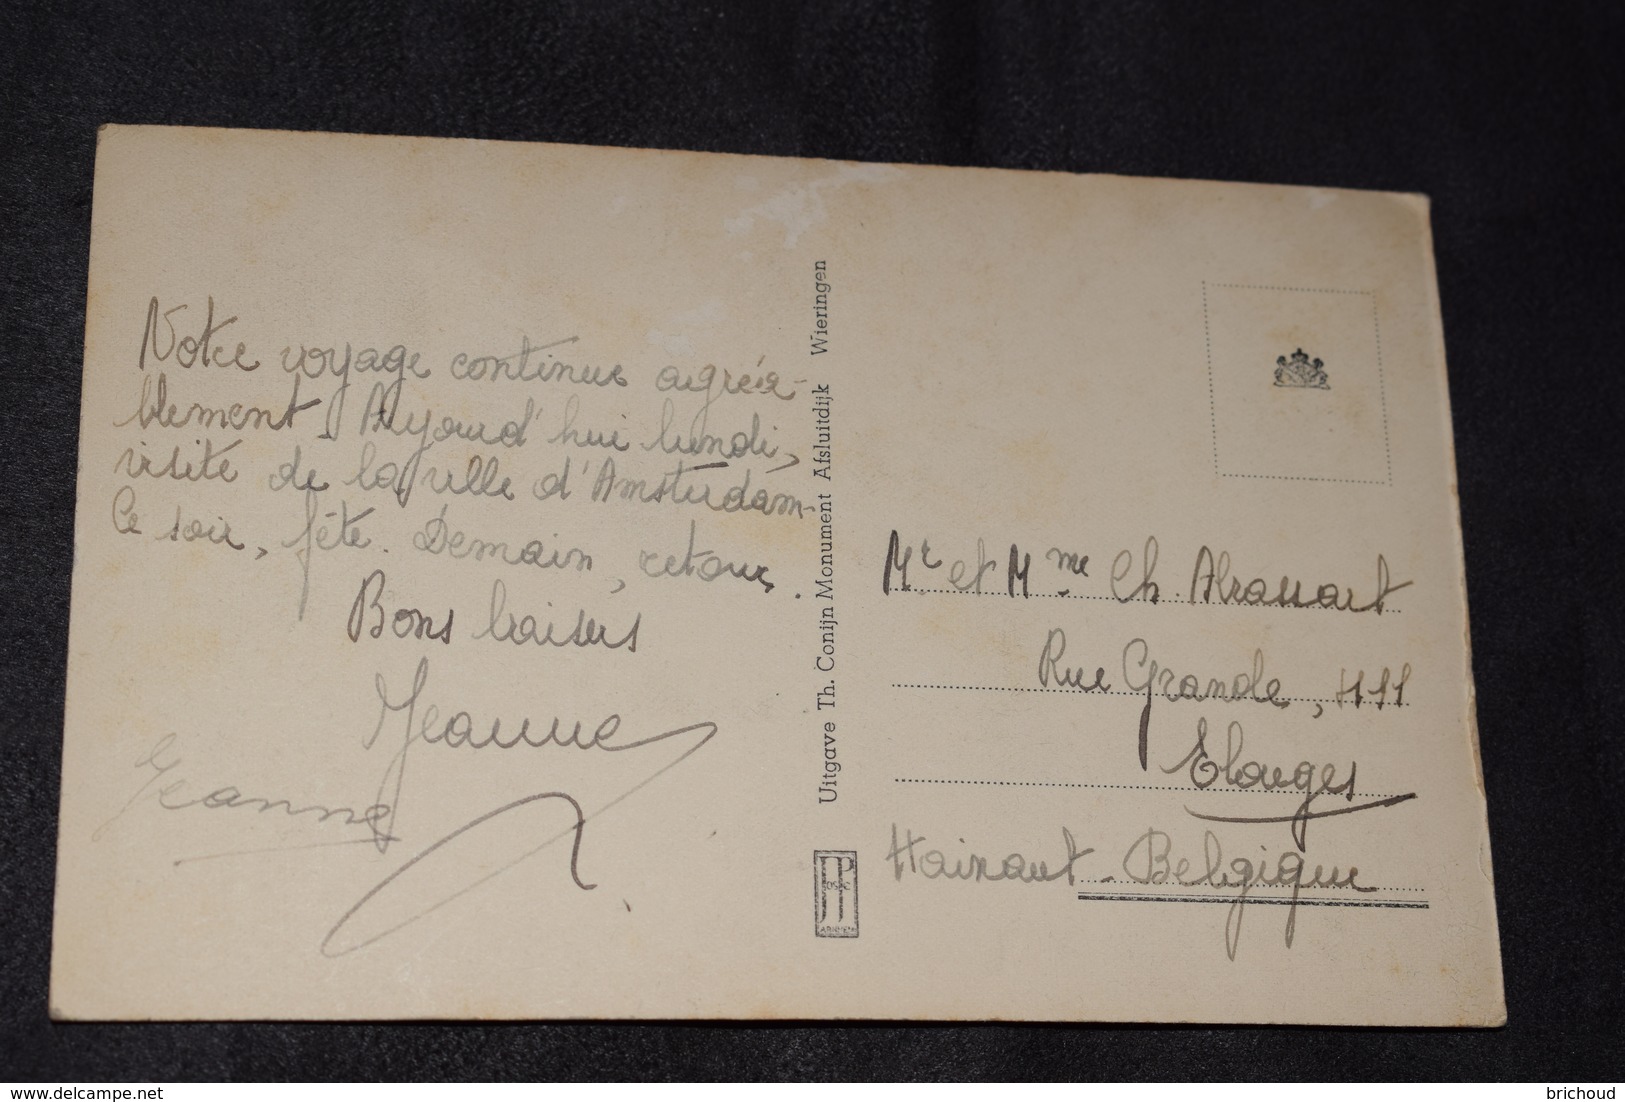 Notre voyage continue agréa-
blement. Aujourd'hui lundi,
visite de la ville d'Amsterdam-
Ce soir, fête. Demain, retour.
Bons baisers
Jeanne
Jeanne
Uitgave Th. Conijn Monument Afsluitdijk Wieringen
JP
Mr et Mme Ch.
Rue Grande, 111
Elouges
Hainaut - Belgique
delcampe.net
brichoud